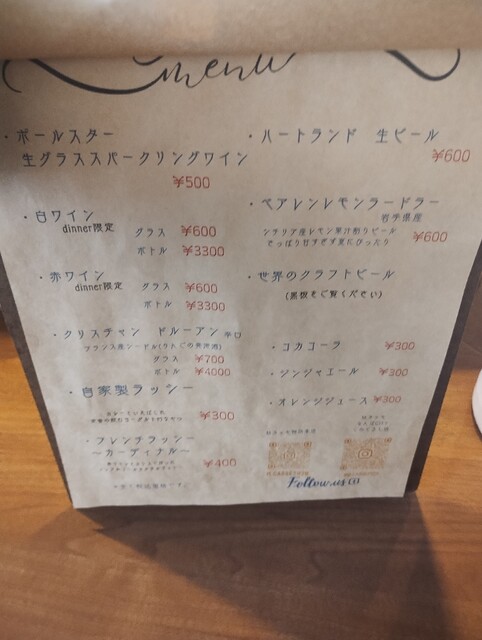 menu
・ポールスター
生グラススパークリングワイン
¥500
・白ワイン
dinner限定
グラス ¥600
ボトル ¥3300
・赤ワイン
dinner限定 グラス ¥600
ボトル ¥3300
・クリスチャン ドルーアン 辛口
フランス産シードル(りんごの発泡酒)
グラス ¥700
ボトル ¥4000
・自家製ラッシー
¥300
・フレンチラッシー
〜カーディナル〜
¥400
・ハートランド 生ビール
¥600
・ベアレンレモンラードラー
岩手県産
シチリア産レモン果汁割りビール
さっぱり甘すぎず夏にぴったり
¥600
・世界のクラフトビール
(黒板をご覧ください)
・コカコーラ ¥300
・ジンジャエール ¥300
・オレンジジュース ¥300
Follow us